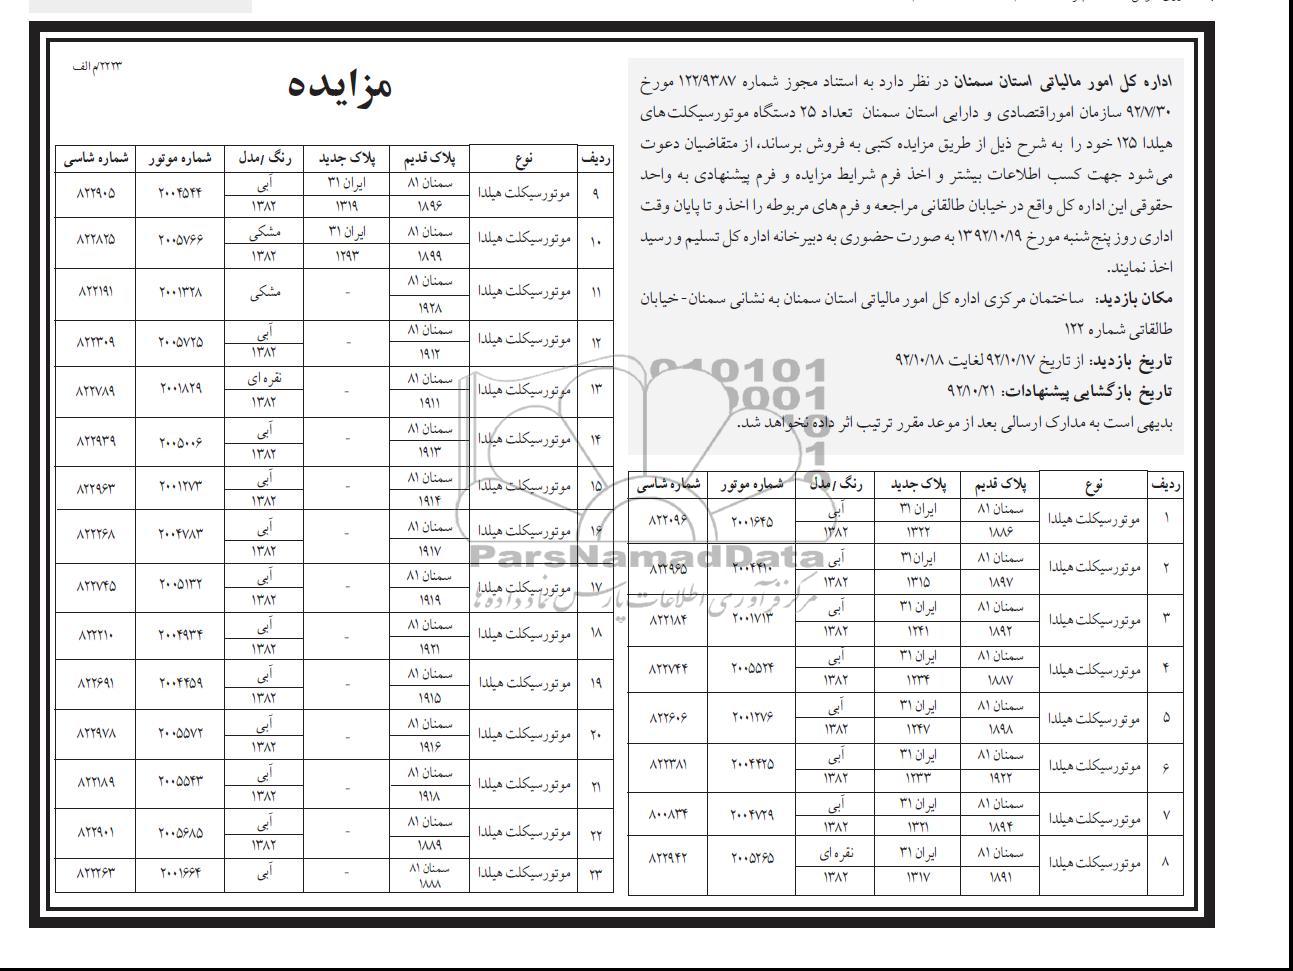 ۲۲۲۳/م الف
مزایده
اداره کل امور مالیاتی استان سمنان در نظر دارد به استناد مجوز شماره ۱۲۲/۹۳۸۷ مورخ
۹۲/۷/۳۰ سازمان اموراقتصادی و دارایی استان سمنان تعداد ۲۵ دستگاه موتورسیکلت‌های
هیلدا ۱۲۵ خود را به شرح ذیل از طریق مزایده کتبی به فروش برساند، از متقاضیان دعوت
می‌شود جهت کسب اطلاعات بیشتر و اخذ فرم شرایط مزایده و فرم پیشنهادی به واحد
حقوقی این اداره کل واقع در خیابان طالقانی مراجعه و فرم‌های مربوطه را اخذ و تا پایان وقت
اداری روز پنج‌شنبه مورخ ۱۳۹۲/۱۰/۱۹ به صورت حضوری به دبیرخانه اداره کل تسلیم و رسید
اخذ نمایند.
مکان بازدید: ساختمان مرکزی اداره کل امور مالیاتی استان سمنان به نشانی سمنان-خیابان
طالقاتی شماره ۱۲۲
تاریخ بازدید: از تاریخ ۹۲/۱۰/۱۷ لغایت ۹۲/۱۰/۱۸
تاریخ بازگشایی پیشنهادات: ۹۲/۱۰/۲۱
بدیهی است به مدارک ارسالی بعد از موعد مقرر ترتیب اثر داده نخواهد شد.
ردیف نوع پلاک قدیم پلاک جدید رنگ /مدل شماره موتور شماره شاسی
۱ موتورسیکلت هیلدا سمنان ۸۱ ۱۸۸۶ ایران ۳۱ ۱۳۲۲ آبی ۱۳۸۲ ۲۰۰۱۶۴۵ ۸۲۲۰۹۶
۲ موتورسیکلت هیلدا سمنان ۸۱ ۱۸۹۷ ایران۳۱ ۱۳۱۵ آبی ۱۳۸۲ ۲۰۰۴۴۱۰ ۸۲۲۹۶۵
۳ موتورسیکلت هیلدا سمنان ۸۱ ۱۸۹۲ ایران ۳۱ ۱۲۴۱ آبی ۱۳۸۲ ۲۰۰۱۷۱۳ ۸۲۲۱۸۴
۴ موتورسیکلت هیلدا سمنان ۸۱ ۱۸۸۷ ایران ۳۱ ۱۲۳۴ آبی ۱۳۸۲ ۲۰۰۵۵۲۴ ۸۲۲۷۴۴
۵ موتورسیکلت هیلدا سمنان ۸۱ ۱۸۹۸ ایران ۳۱ ۱۲۴۷ آبی ۱۳۸۲ ۲۰۰۱۲۷۶ ۸۲۲۶۰۶
۶ موتورسیکلت هیلدا سمنان ۸۱ ۱۹۲۲ ایران ۳۱ ۱۲۳۳ آبی ۱۳۸۲ ۲۰۰۴۴۲۵ ۸۲۲۳۸۱
۷ موتورسیکلت هیلدا سمنان ۸۱ ۱۸۹۴ ایران ۳۱ ۱۳۲۱ آبی ۱۳۸۲ ۲۰۰۴۷۲۹ ۸۰۰۸۳۴
۸ موتورسیکلت هیلدا سمنان ۸۱ ۱۸۹۱ ایران ۳۱ ۱۳۱۷ نقره ای ۱۳۸۲ ۲۰۰۵۲۶۵ ۸۲۲۹۴۲
ردیف نوع پلاک قدیم پلاک جدید رنگ /مدل شماره موتور شماره شاسی
۹ موتورسیکلت هیلدا سمنان ۸۱ ۱۸۹۶ ایران ۳۱ ۱۳۱۹ آبی ۱۳۸۲ ۲۰۰۴۵۴۴ ۸۲۲۹۰۵
۱۰ موتورسیکلت هیلدا سمنان ۸۱ ۱۸۹۹ ایران ۳۱ ۱۲۹۳ مشکی ۱۳۸۲ ۲۰۰۵۷۶۶ ۸۲۲۸۲۵
۱۱ موتورسیکلت هیلدا سمنان ۸۱ ۱۹۲۸ - مشکی ۲۰۰۱۳۲۸ ۸۲۲۱۹۱
۱۲ موتورسیکلت هیلدا سمنان ۸۱ ۱۹۱۲ - آبی ۱۳۸۲ ۲۰۰۵۷۲۵ ۸۲۲۳۰۹
۱۳ موتورسیکلت هیلدا سمنان ۸۱ ۱۹۱۱ - نقره ای ۱۳۸۲ ۲۰۰۱۸۲۹ ۸۲۲۷۸۹
۱۴ موتورسیکلت هیلدا سمنان ۸۱ ۱۹۱۳ - آبی ۱۳۸۲ ۲۰۰۵۰۰۶ ۸۲۲۹۳۹
۱۵ موتورسیکلت هیلدا سمنان ۸۱ ۱۹۱۴ - آبی ۱۳۸۲ ۲۰۰۱۲۷۳ ۸۲۲۹۶۳
۱۶ موتورسیکلت هیلدا سمنان ۸۱ ۱۹۱۷ - آبی ۱۳۸۲ ۲۰۰۴۷۸۳ ۸۲۲۲۶۸
۱۷ موتورسیکلت هیلدا سمنان ۸۱ ۱۹۱۹ - آبی ۱۳۸۲ ۲۰۰۵۱۳۲ ۸۲۲۷۴۵
۱۸ موتورسیکلت هیلدا سمنان ۸۱ ۱۹۲۱ - آبی ۱۳۸۲ ۲۰۰۴۹۳۴ ۸۲۲۲۱۰
۱۹ موتورسیکلت هیلدا سمنان ۸۱ ۱۹۱۵ - آبی ۱۳۸۲ ۲۰۰۴۴۵۹ ۸۲۲۶۹۱
۲۰ موتورسیکلت هیلدا سمنان ۸۱ ۱۹۱۶ - آبی ۱۳۸۲ ۲۰۰۵۵۷۲ ۸۲۲۹۷۸
۲۱ موتورسیکلت هیلدا سمنان ۸۱ ۱۹۱۸ - آبی ۱۳۸۲ ۲۰۰۵۵۴۳ ۸۲۲۱۸۹
۲۲ موتورسیکلت هیلدا سمنان ۸۱ ۱۸۸۹ - آبی ۱۳۸۲ ۲۰۰۵۶۸۵ ۸۲۲۹۰۱
۲۳ موتورسیکلت هیلدا سمنان ۸۱ ۱۸۸۸ - آبی ۲۰۰۱۶۶۴ ۸۲۲۲۶۳
ParsNamadData
مرکز فرآوری اطلاعات پارس نماد داده ها